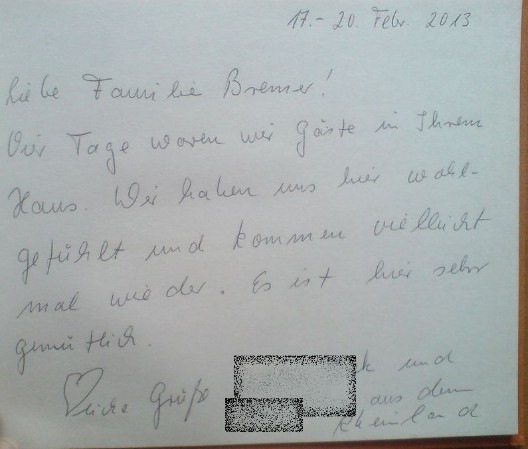 17.- 20. Febr. 2013
Liebe Familie Bremer!
Vier Tage waren wir Gäste in Ihrem
Haus. Wir haben uns hier wohl-
gefühlt und kommen vielleicht
mal wieder. Es ist hier sehr
gemütlich.
Herzliche Grüße und
aus dem
Rheinland